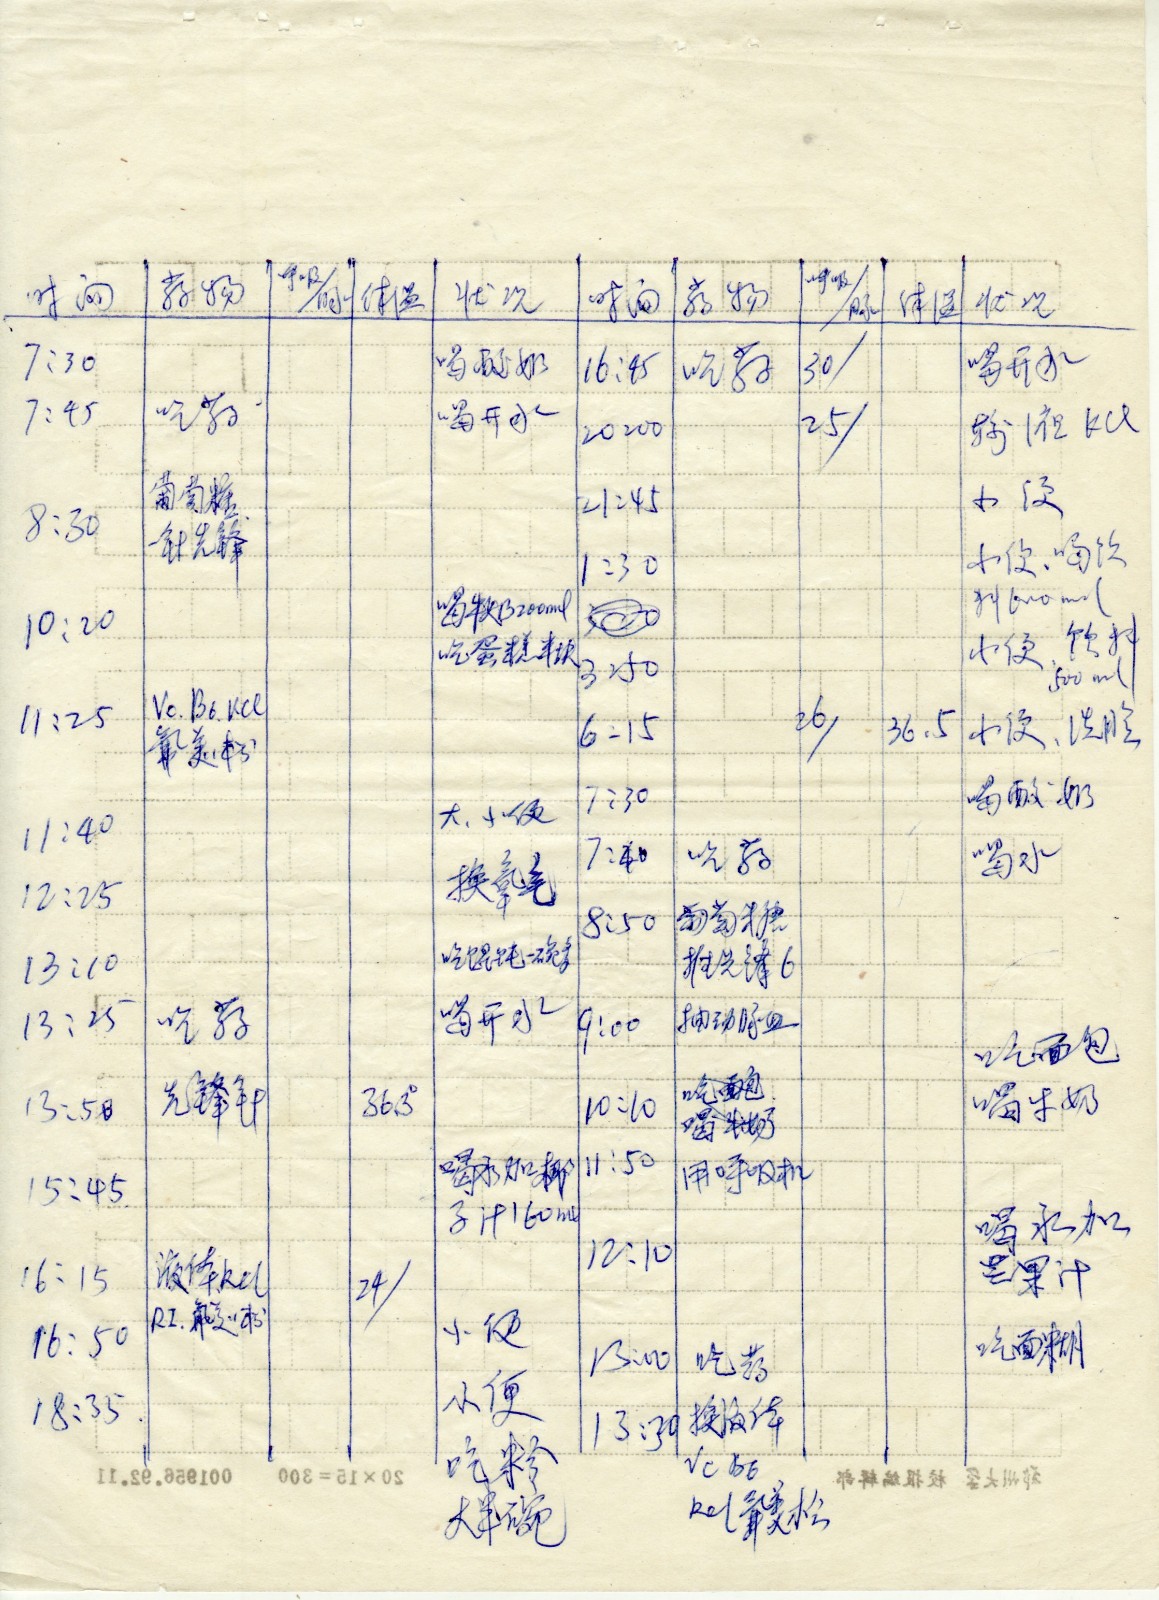 时间 药物 呼吸/脉 体温 状况
7:30 喝酸奶
7:45 吃药 喝开水
8:30 葡萄糖
针先锋
10:20 喝牛奶200ml
吃蛋糕半块
11:25 Vc.B6.KCl
氟美松
11:40 大、小便
12:25 换氧气
13:10 吃馄饨一碗多
13:25 吃药 喝开水
13:50 先锋针 36.5
15:45 喝永加椰
子汁160ml
16:15 液体KCl 24/
RI.氟美松
16:50 小便
18:35 小便
吃米令
大半碗
时间 药物 呼吸/脉 体温 状况
16:45 吃药 30/ 喝开水
20:00 25/ 输液 KCl
21:45 小便
1:30 小便、喝饮
料600ml
3:50 小便、饮料
500ml
6:15 26/ 36.5 小便、洗脸
7:30 喝酸奶
7:40 吃药 喝水
8:50 葡萄糖
推先锋6
9:00 抽动脉血
吃面包
10:10 吃面包 喝牛奶
喝牛奶
11:50 用呼吸机
12:10 喝永加
芒果汁
13:00 吃药 吃面糊
13:30 换液体
Vc B6
KCl 氟美松
郑州大学 校报编辑部 20×15=300 001956.92.11